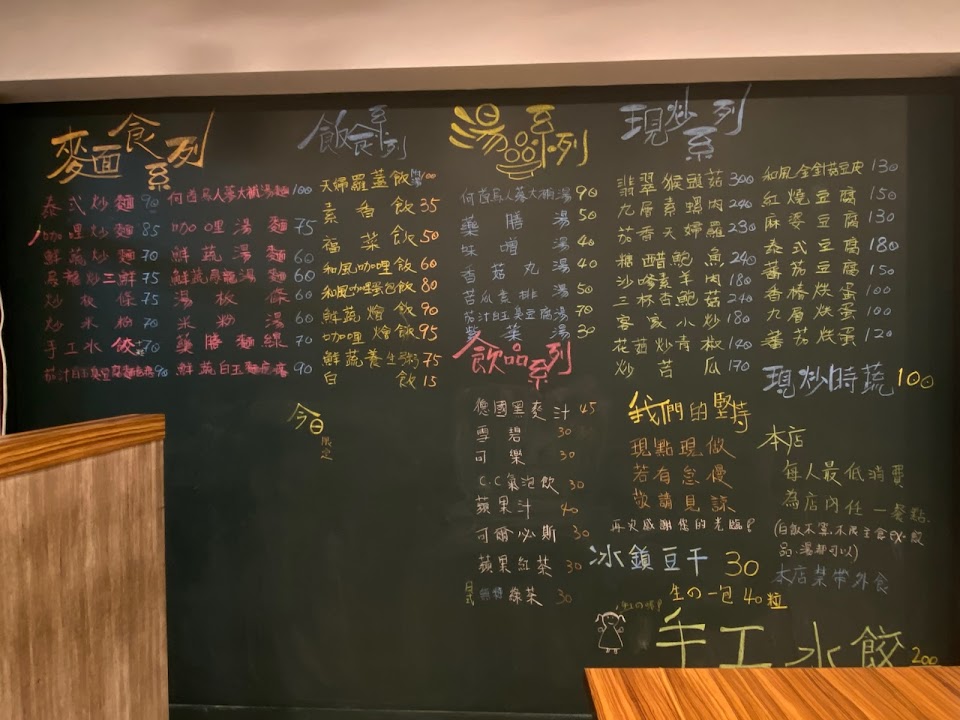 麥面食系列
泰式炒麵 90
咖哩炒麵 85
鮮蔬炒麵 70
炒三鮮 75
炒粄條 75
炒米粉 70
手工水餃 70
90
何首烏人蔘大補湯麵 100
咖哩湯麵 75
鮮蔬湯麵 60
鮮蔬 湯麵 60
湯粄條 60
米粉湯 60
藥膳麵線 70
鮮蔬白玉麵疙瘩 90
飯食系列
天婦羅蓋飯 100
素香飯 35
福菜飯 50
和風咖哩飯 60
和風咖哩蛋包飯 80
鮮蔬燴飯 90
咖哩燴飯 95
鮮蔬養生粥 75
白飯 15
今日
湯品系列
何首烏人蔘大補湯 90
藥膳湯 50
味噌湯 40
香菇丸湯 40
苦瓜素排湯 50
茄汁白玉臭豆腐湯 70
紫菜湯 30
飲品系列
德國黑麥汁 45
雪碧 30
可樂 30
C.C氣泡飲 30
蘋果汁 40
可爾必斯 30
蘋果紅茶 30
日式 無糖 綠茶 30
現炒系列
翡翠猴頭菇 300
九層素螺肉 240
茄香天婦羅 230
糖醋鮑魚 240
沙嗲素羊肉 180
三杯杏鮑菇 240
客家小炒 180
花菇炒青椒 140
炒苦瓜 170
和風金針菇豆皮 130
紅燒豆腐 150
麻婆豆腐 130
泰式豆腐 180
蕃茄豆腐 150
香椿烘蛋 100
九層烘蛋 100
蕃茄烘蛋 120
現炒時蔬 100
我們的堅持
現點現做
若有怠慢
敬請見諒
再次感謝您的光臨!
本店
每人最低消費
為店內任一餐點.
(白飯不算.不限主食EX.飲
品.湯都可以)
本店禁帶外食
冰鎮豆干 30
生の一包40粒
手工水餃 200